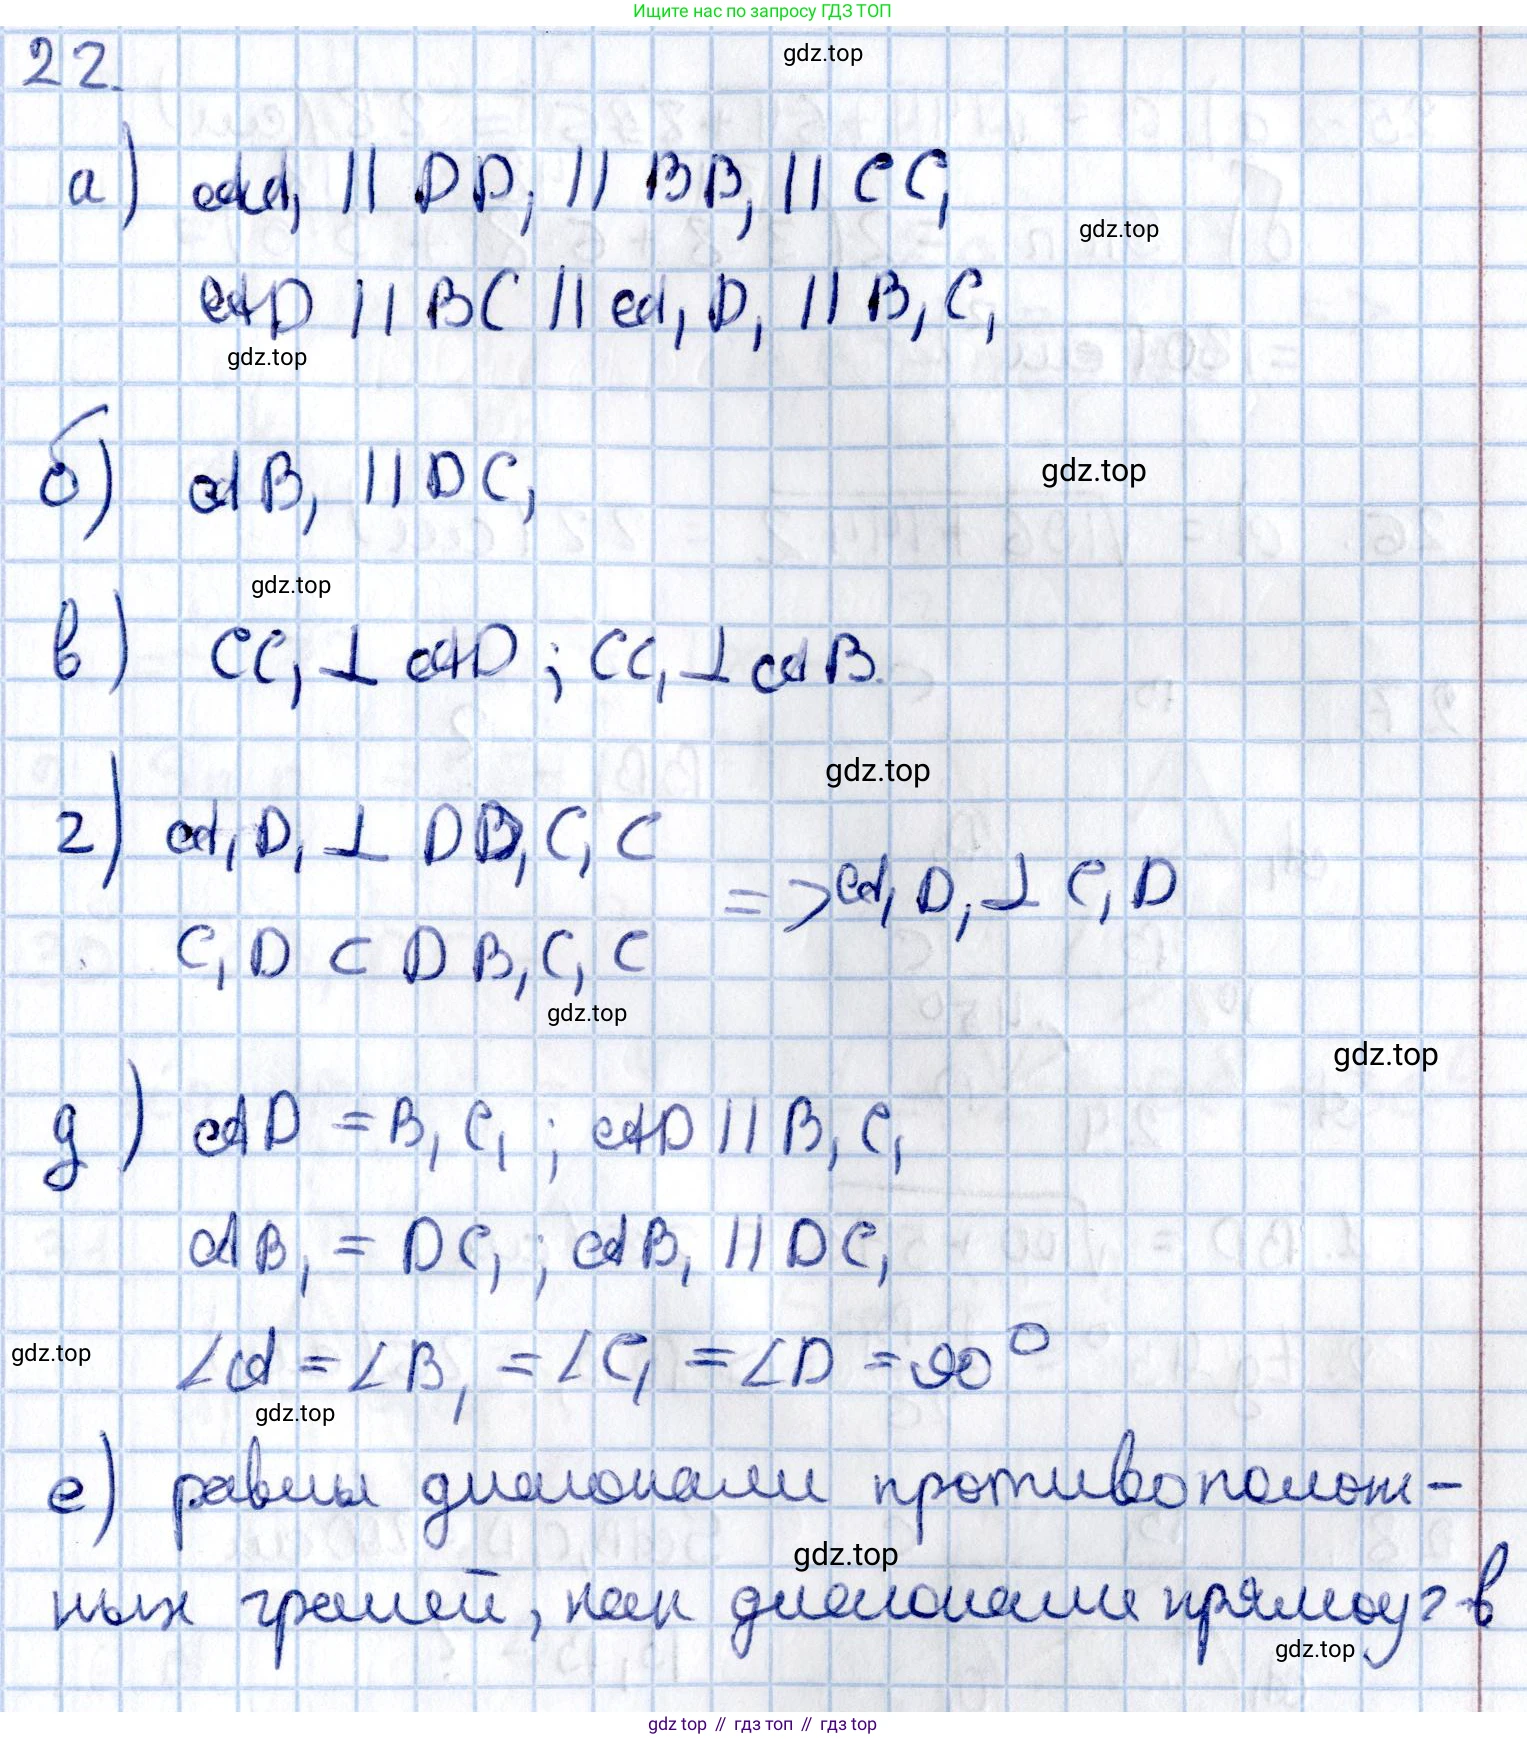 Ищите нас по запросу ГДЗ ТОП
22.
gdz.top
а) AA₁ || DD₁ || BB₁ || CC₁
gdz.top
AD || BC || A₁D₁ || B₁C₁
gdz.top
б) AB₁ || DC₁
gdz.top
gdz.top
в) CC₁ ⊥ AD ; CC₁ ⊥ AB.
gdz.top
г) A₁D₁ ⊥ DD₁C₁C
=> A₁D₁ ⊥ C₁D
C₁D ⊂ DB₁C₁C
gdz.top
gdz.top
д) AD = B₁C₁ ; AD || B₁C₁
AB₁ = DC₁ ; AB₁ || DC₁
gdz.top
∠A = ∠B₁ = ∠C₁ = ∠D = 90°
gdz.top
е) равны диагонали противополож-
gdz.top
ных граней, как диагонали прямоуг-в
gdz.top
gdz top // гдз топ // гдз top